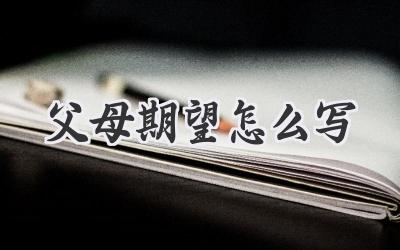 父母期望怎么写